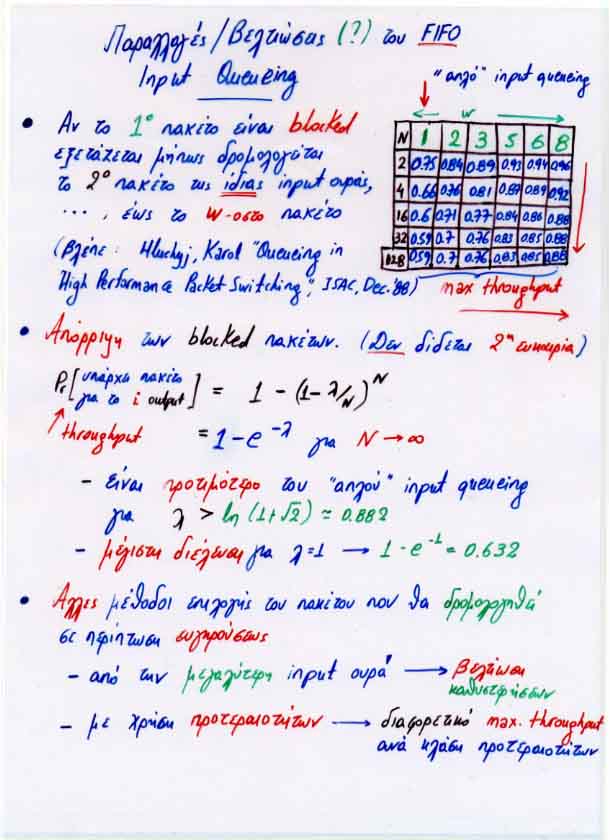 Παραλλαγές / Βελτιώσεις (?) του FIFO
Input Queueing
"απλό" input queueing
w
N 1 2 3 5 6 8
2 0.75 0.84 0.89 0.93 0.94 0.96
4 0.66 0.76 0.81 0.87 0.89 0.92
16 0.6 0.71 0.77 0.84 0.86 0.88
32 0.59 0.7 0.76 0.83 0.85 0.88
128 0.59 0.7 0.76 0.83 0.85 0.88
max throughput
• Αν το 1ο πακέτο είναι blocked
εξετάζεται μήπως δρομολογείται
το 2ο πακέτο της ίδιας input ουράς,
..., έως το w-οστο πακέτο
(βλέπε: Hluchyj, Karol "Queueing in
High Performance Packet Switching", JSAC, Dec. '88)
• Απόρριψη των blocked πακέτων. (Δεν δίδεται 2η ευκαιρία)
Pr [υπάρχει πακέτο
για το i output] = 1 - (1-λ/N)^N
throughput = 1 - e^-λ για N → ∞
- είναι προτιμότερο του "απλού" input queueing
για λ > ln (1+√2) ≈ 0.882
- μέγιστη διέλευση για λ=1 → 1 - e^-1 = 0.632
• Άλλες μέθοδοι επιλογής του πακέτου που θα δρομολογηθεί
σε περίπτωση συγκρούσεως
- από την μεγαλύτερη input ουρά → βελτίωση
καθυστερήσεων
- με χρήση προτεραιοτήτων → διαφορετικό max. throughput
ανά κλάση προτεραιοτήτων